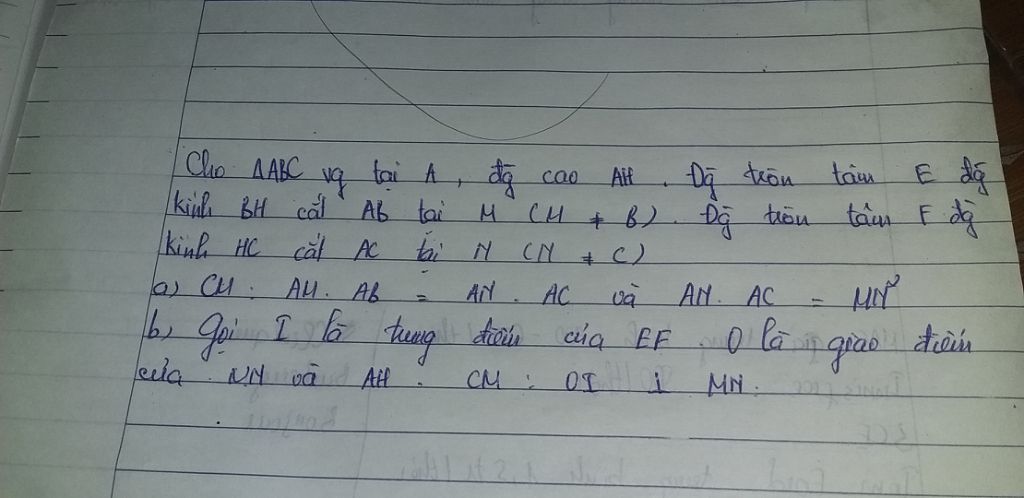 Cho ΔABC vg tại A, đg cao AH. Đg tròn tâm E đg
kính BH cắt AB tại M (M ≠ B). Đg tròn tâm F đg
kính HC cắt AC tại N (N ≠ C)
a) CM: AM. AB = AN. AC và AN. AC = MN²
b) Gọi I là trung điểm của EF. O là giao điểm
của MN và AH. CM: OI ⊥ MN.